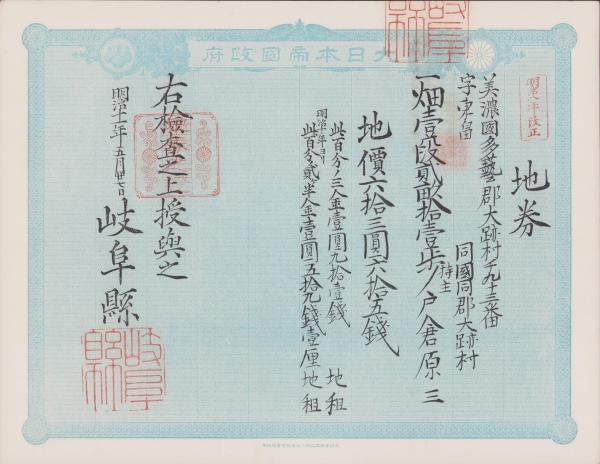 大日本帝國政府
明治九年改正
地券
美濃國多藝郡大跡村千九十三番
字東畠
同國同郡大跡村
一畑壹段貳畝拾壹歩 持主 戸倉原三
地價六拾三圓六拾五錢
此百分ノ三金壹圓九拾壹錢 地租
明治十年ヨリ
此百分ノ貳半金壹圓五拾九錢壹厘 地租
右檢査之上授與之
明治十一年五月廿七日
岐阜縣
岐阜縣